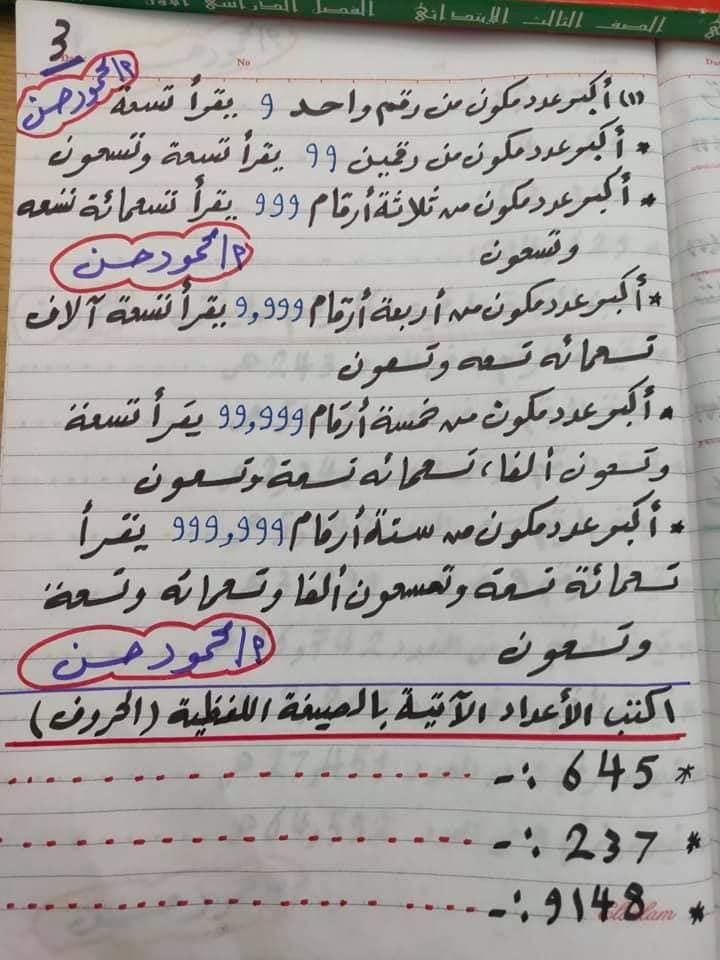 الصف الثالث الابتدائي الفصل الدراسي الأول
3
No
(١) أكبر عدد مكون من رقم واحد 9 يقرأ تسعة
م/محمود حسن
* أكبر عدد مكون من رقمين 99 يقرأ تسعة وتسعون
* أكبر عدد مكون من ثلاثة أرقام 999 يقرأ تسعمائة تسعه
وتسعون
م/محمود حسن
* أكبر عدد مكون من أربعة أرقام 9,999 يقرأ تسعة آلاف
تسعمائه تسعه وتسعون
* أكبر عدد مكون من خمسة أرقام 99,999 يقرأ تسعة
وتسعون ألفا، تسعمائه تسعة وتسعون
* أكبر عدد مكون من ستة أرقام 999,999 يقرأ
تسعمائة تسعة وتسعون ألفا وتسعمائه وتسعة
وتسعون
م/محمود حسن
اكتب الأعداد الآتية بالصيغة اللفظية (الحروف)
* 645 :- ..............................
* 237 :- ..............................
* 9148 :- ..............................